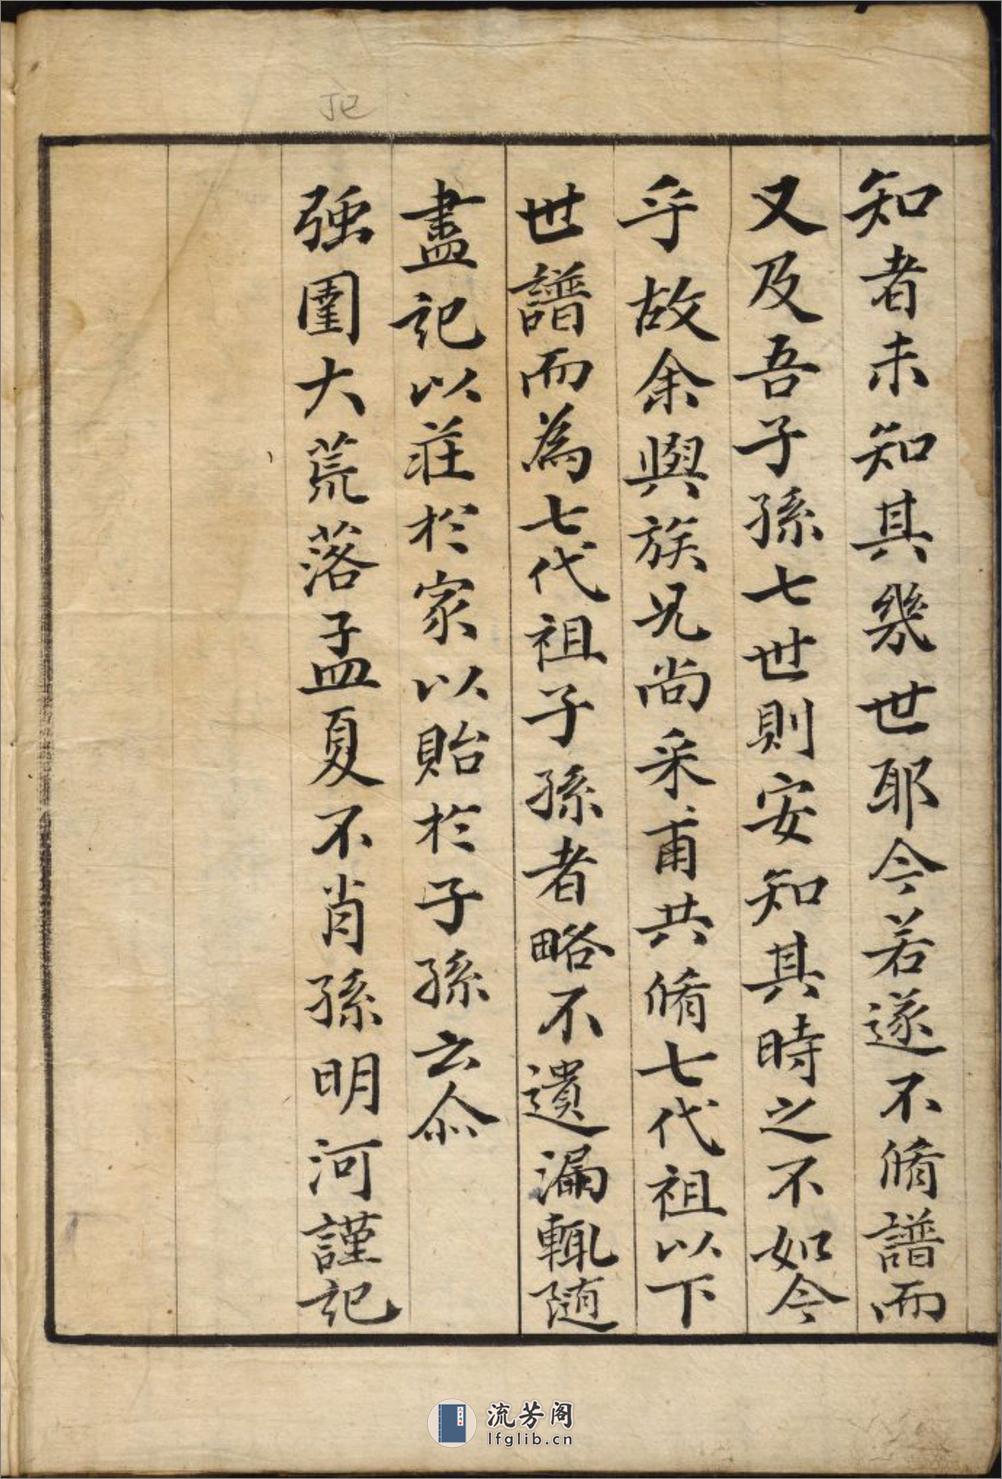 知者未知其幾世耶今若遂不脩譜而
又及吾子孫七世則安知其時之不如今
乎故余與族兄尚采甫共脩七代祖以下
世譜而為七代祖子孫者略不遺漏輒随
盡記以莊於家以貽於子孫云尒
強圉大荒落孟夏不肖孫明河謹記
丁巳
流芳阁
lfglib.cn